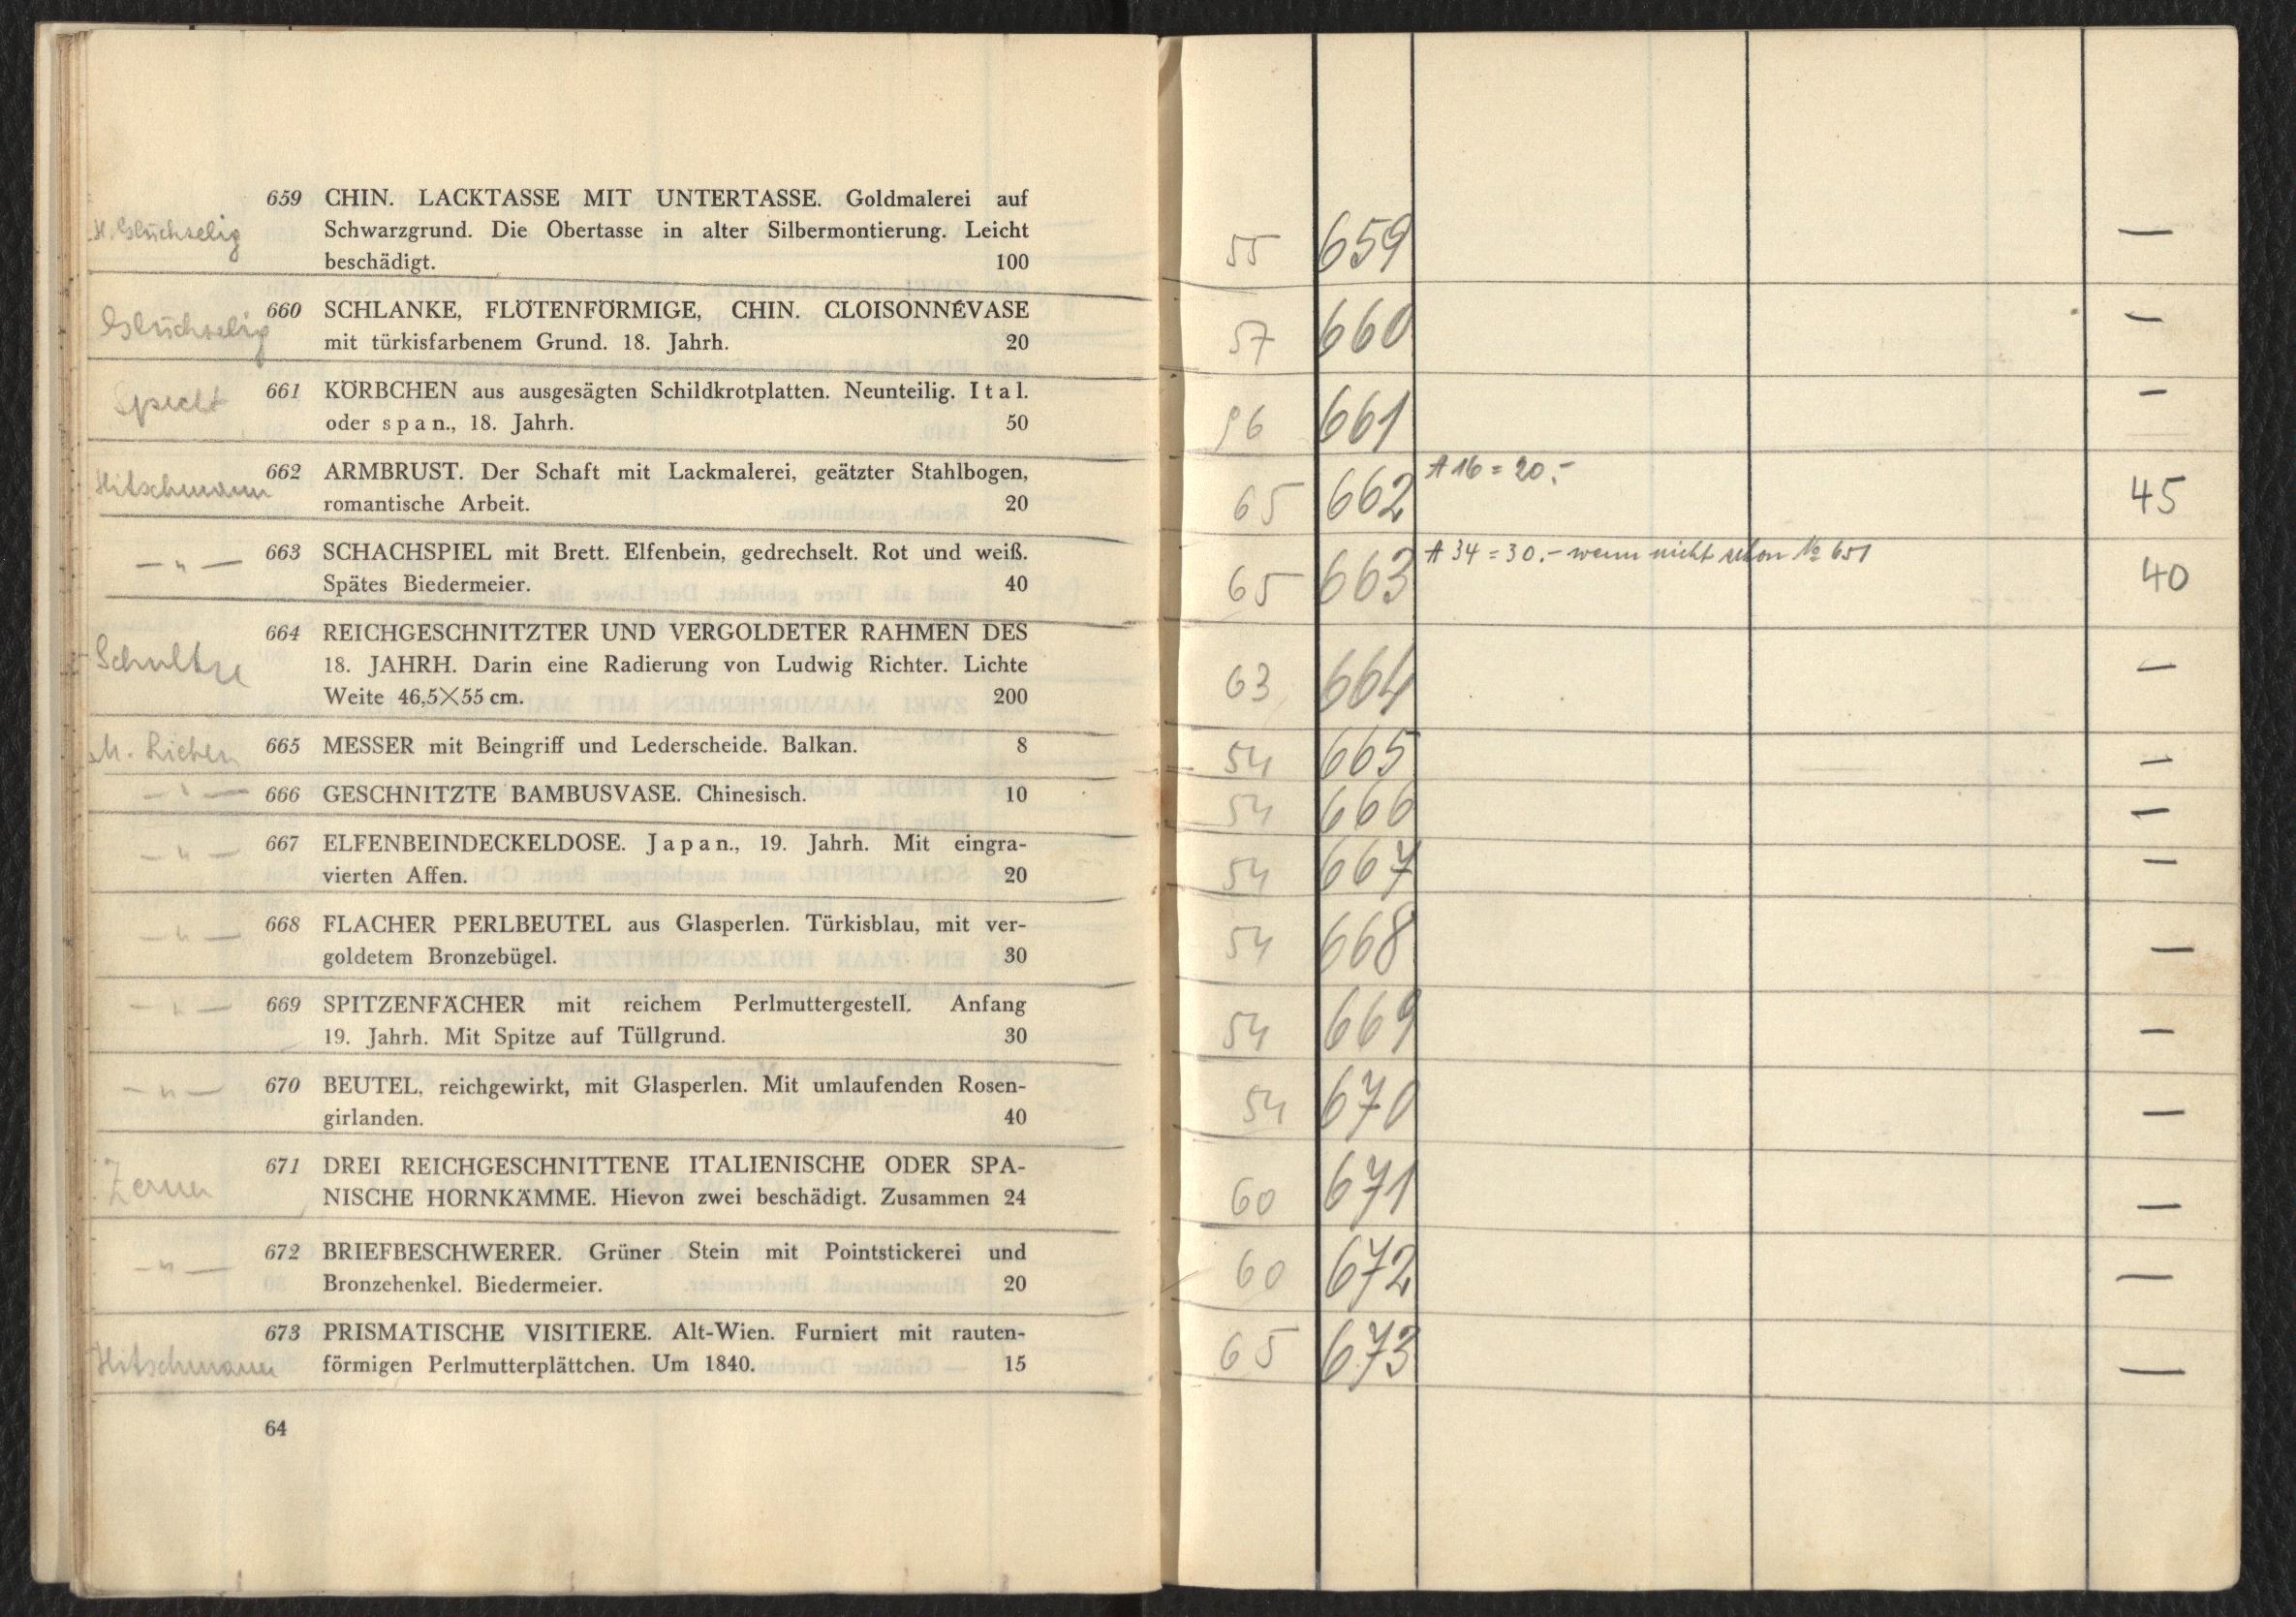 H. Glückselig
659 CHIN. LACKTASSE MIT UNTERTASSE. Goldmalerei auf
Schwarzgrund. Die Obertasse in alter Silbermontierung. Leicht
beschädigt. 100
Glückselig
660 SCHLANKE, FLÖTENFÖRMIGE, CHIN. CLOISONNÉVASE
mit türkisfarbenem Grund. 18. Jahrh. 20
Specht
661 KÖRBCHEN aus ausgesägten Schildkrotplatten. Neunteilig. Ital.
oder span., 18. Jahrh. 50
Hitschmann
662 ARMBRUST. Der Schaft mit Lackmalerei, geätzter Stahlbogen,
romantische Arbeit. 20
— " —
663 SCHACHSPIEL mit Brett. Elfenbein, gedrechselt. Rot und weiß.
Spätes Biedermeier. 40
Schultze
664 REICHGESCHNITZTER UND VERGOLDETER RAHMEN DES
18. JAHRH. Darin eine Radierung von Ludwig Richter. Lichte
Weite 46,5×55 cm. 200
665 MESSER mit Beingriff und Lederscheide. Balkan. 8
— " —
666 GESCHNITZTE BAMBUSVASE. Chinesisch. 10
— " —
667 ELFENBEINDECKELDOSE. Japan., 19. Jahrh. Mit eingra-
vierten Affen. 20
— " —
668 FLACHER PERLBEUTEL aus Glasperlen. Türkisblau, mit ver-
goldetem Bronzebügel. 30
— " —
669 SPITZENFÄCHER mit reichem Perlmuttergestell. Anfang
19. Jahrh. Mit Spitze auf Tüllgrund. 30
— " —
670 BEUTEL, reichgewirkt, mit Glasperlen. Mit umlaufenden Rosen-
girlanden. 40
671 DREI REICHGESCHNITTENE ITALIENISCHE ODER SPA-
NISCHE HORNKÄMME. Hievon zwei beschädigt. Zusammen 24
— " —
672 BRIEFBESCHWERER. Grüner Stein mit Pointstickerei und
Bronzehenkel. Biedermeier. 20
Hitschmann
673 PRISMATISCHE VISITIERE. Alt-Wien. Furniert mit rauten-
förmigen Perlmutterplättchen. Um 1840. 15
64
55 659 —
57 660 —
661 —
65 662 A 16 = 20.- 45
65 663 A 34 = 30.- wenn nicht schon № 651 40
63 664 —
54 665 —
54 666 —
54 667 —
54 668 —
54 669 —
54 670 —
60 671 —
60 672 —
65 673 —